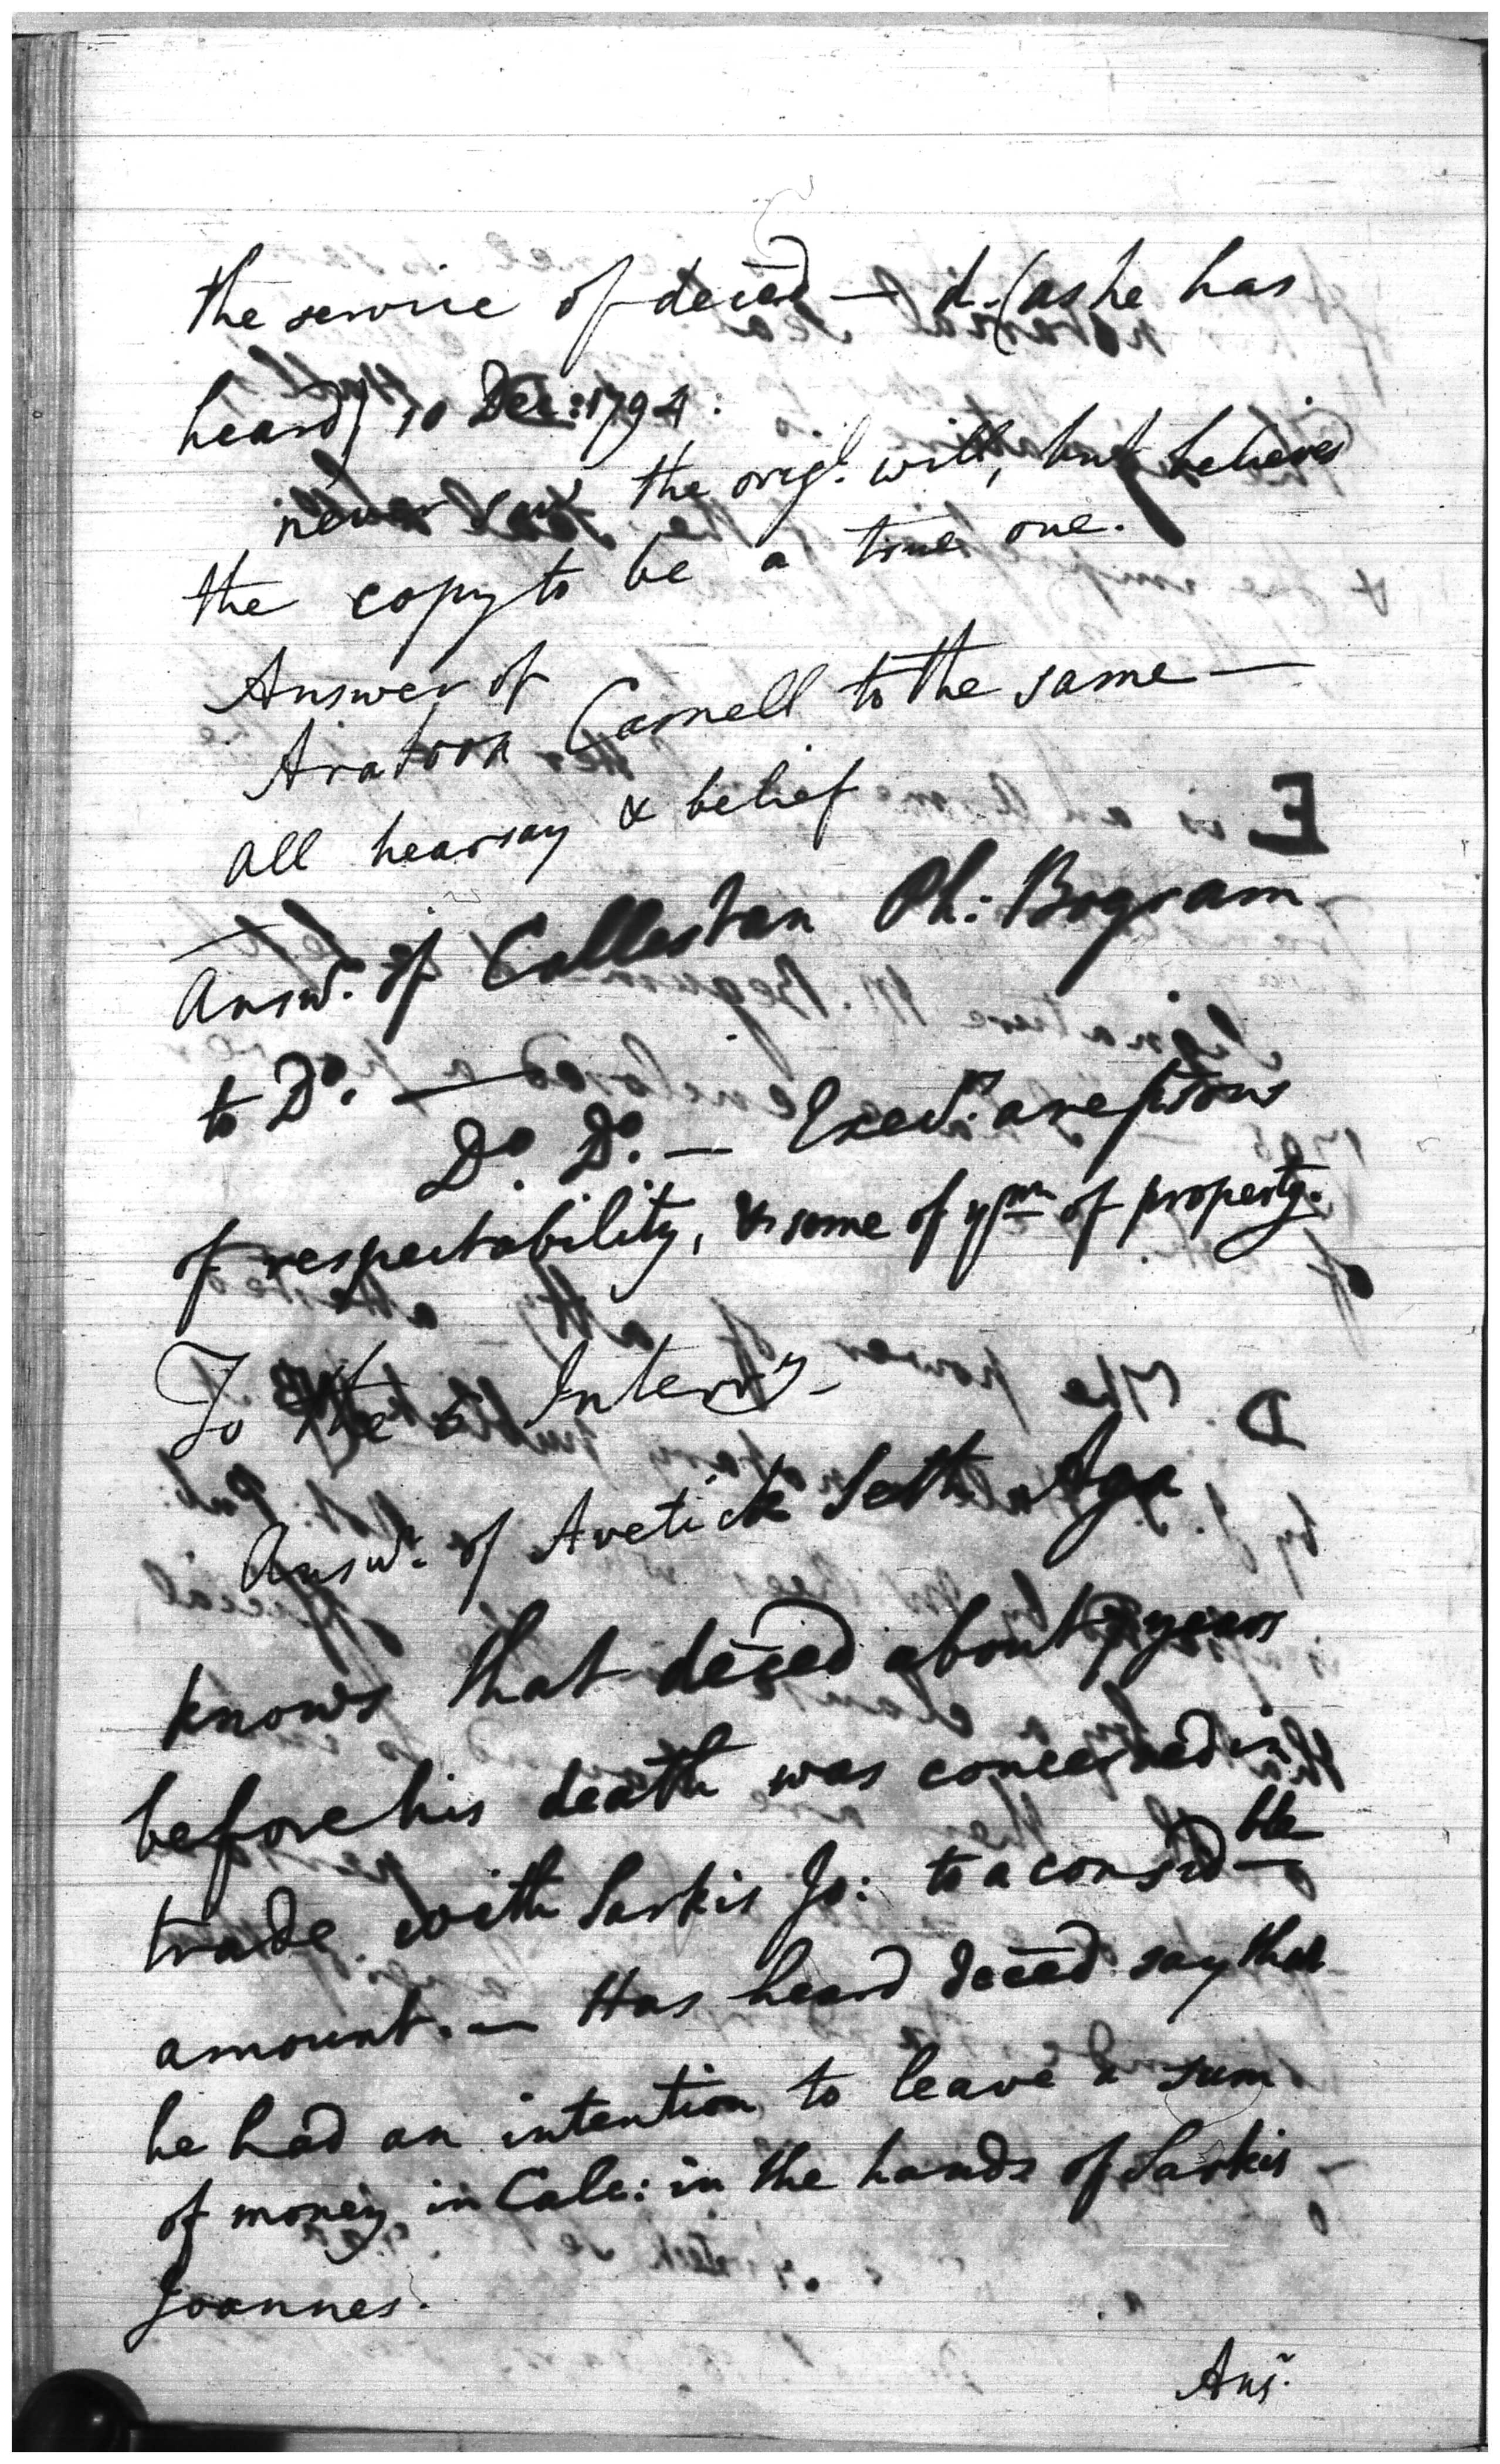 the service of deced — d. (as he has
heard) 10 Dec: 1794.
never saw the origl. will, but believes
the copy to be a true one.
Answer of
Aratoon Carnell to the same —
all hearsay & belief
Answr. of Callestan Ph: Bogram
to Do. —
Do. Do. — Execrs. are psons
of respectability, & some of ym of property.
To the Interry
Answr. of Avetick Seth Aga
knows that deced about years
before his death was concerned in
trade with Sarkis Jo: to a considble
amount. — Has heard deced say that
he had an intention to leave a sum
of money in Calc: in the hands of Sarkis
Joannes.
Ansr.